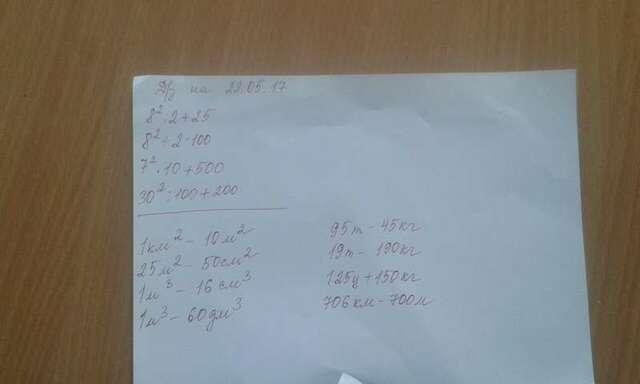 Д/з на 22.05.17
8²:2+25
8²:2·100
7²·10+500
30²:100+200
1км²-10м²
25м²-50см²
1м³-16см³
1м³-60дм³
95т-45кг
19т-190кг
125ц+150кг
706км-700м